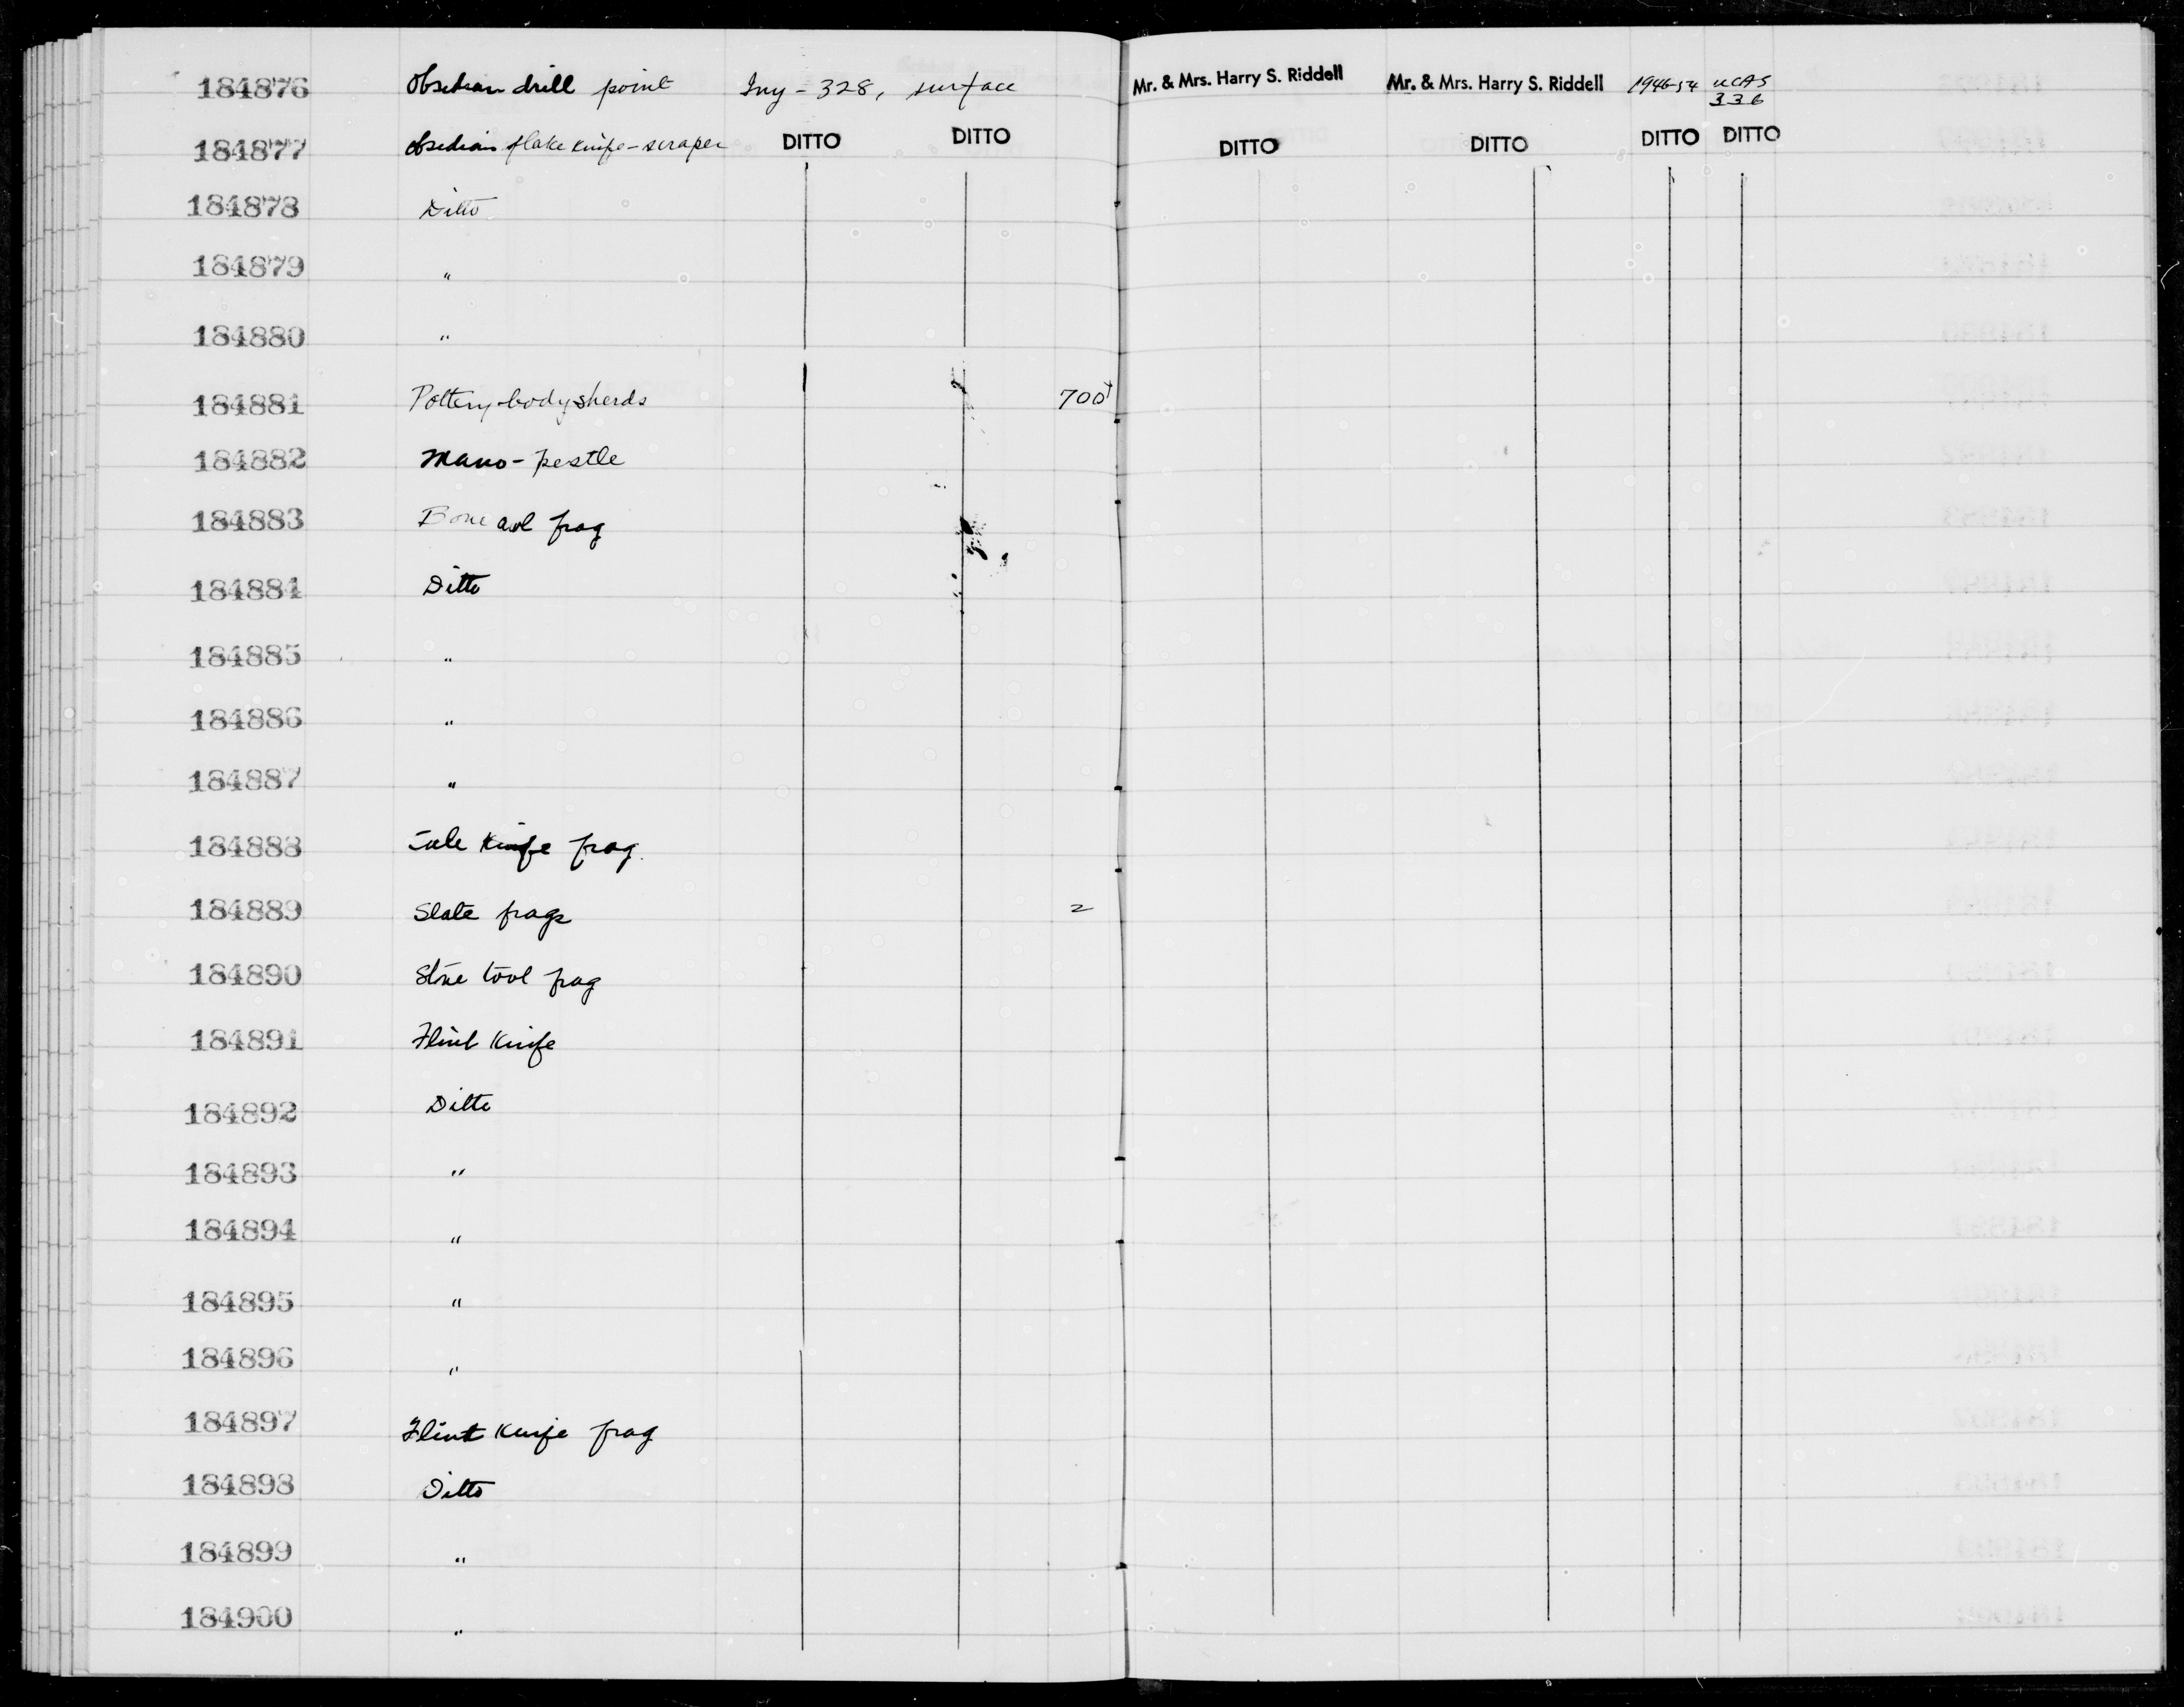 184876 Obsidian drill point Iny - 328, surface Mr. & Mrs. Harry S. Riddell Mr. & Mrs. Harry S. Riddell 1946-54 UCAS 336
184877 Obsidian flake knife-scraper DITTO DITTO DITTO DITTO DITTO DITTO
184878 Ditto
184879 "
184880 "
184881 Pottery body sherds 700+
184882 Mano-pestle
184883 Bone awl frag
184884 Ditto
184885 "
184886 "
184887 "
184888 knife frag.
184889 Slate frags 2
184890 Stone tool frag
184891 Flint knife
184892 Ditto
184893 "
184894 "
184895 "
184896 "
184897 Flint knife frag
184898 Ditto
184899 "
184900 "